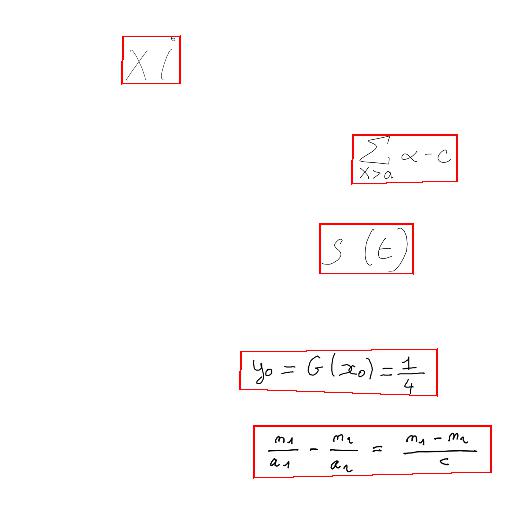 X i
\sum_{x>a} \alpha - c
S (t)
y_0 = G(x_0) = \frac{1}{4}
\frac{n_1}{a_1} - \frac{n_2}{a_2} = \frac{n_1 - n_2}{c}